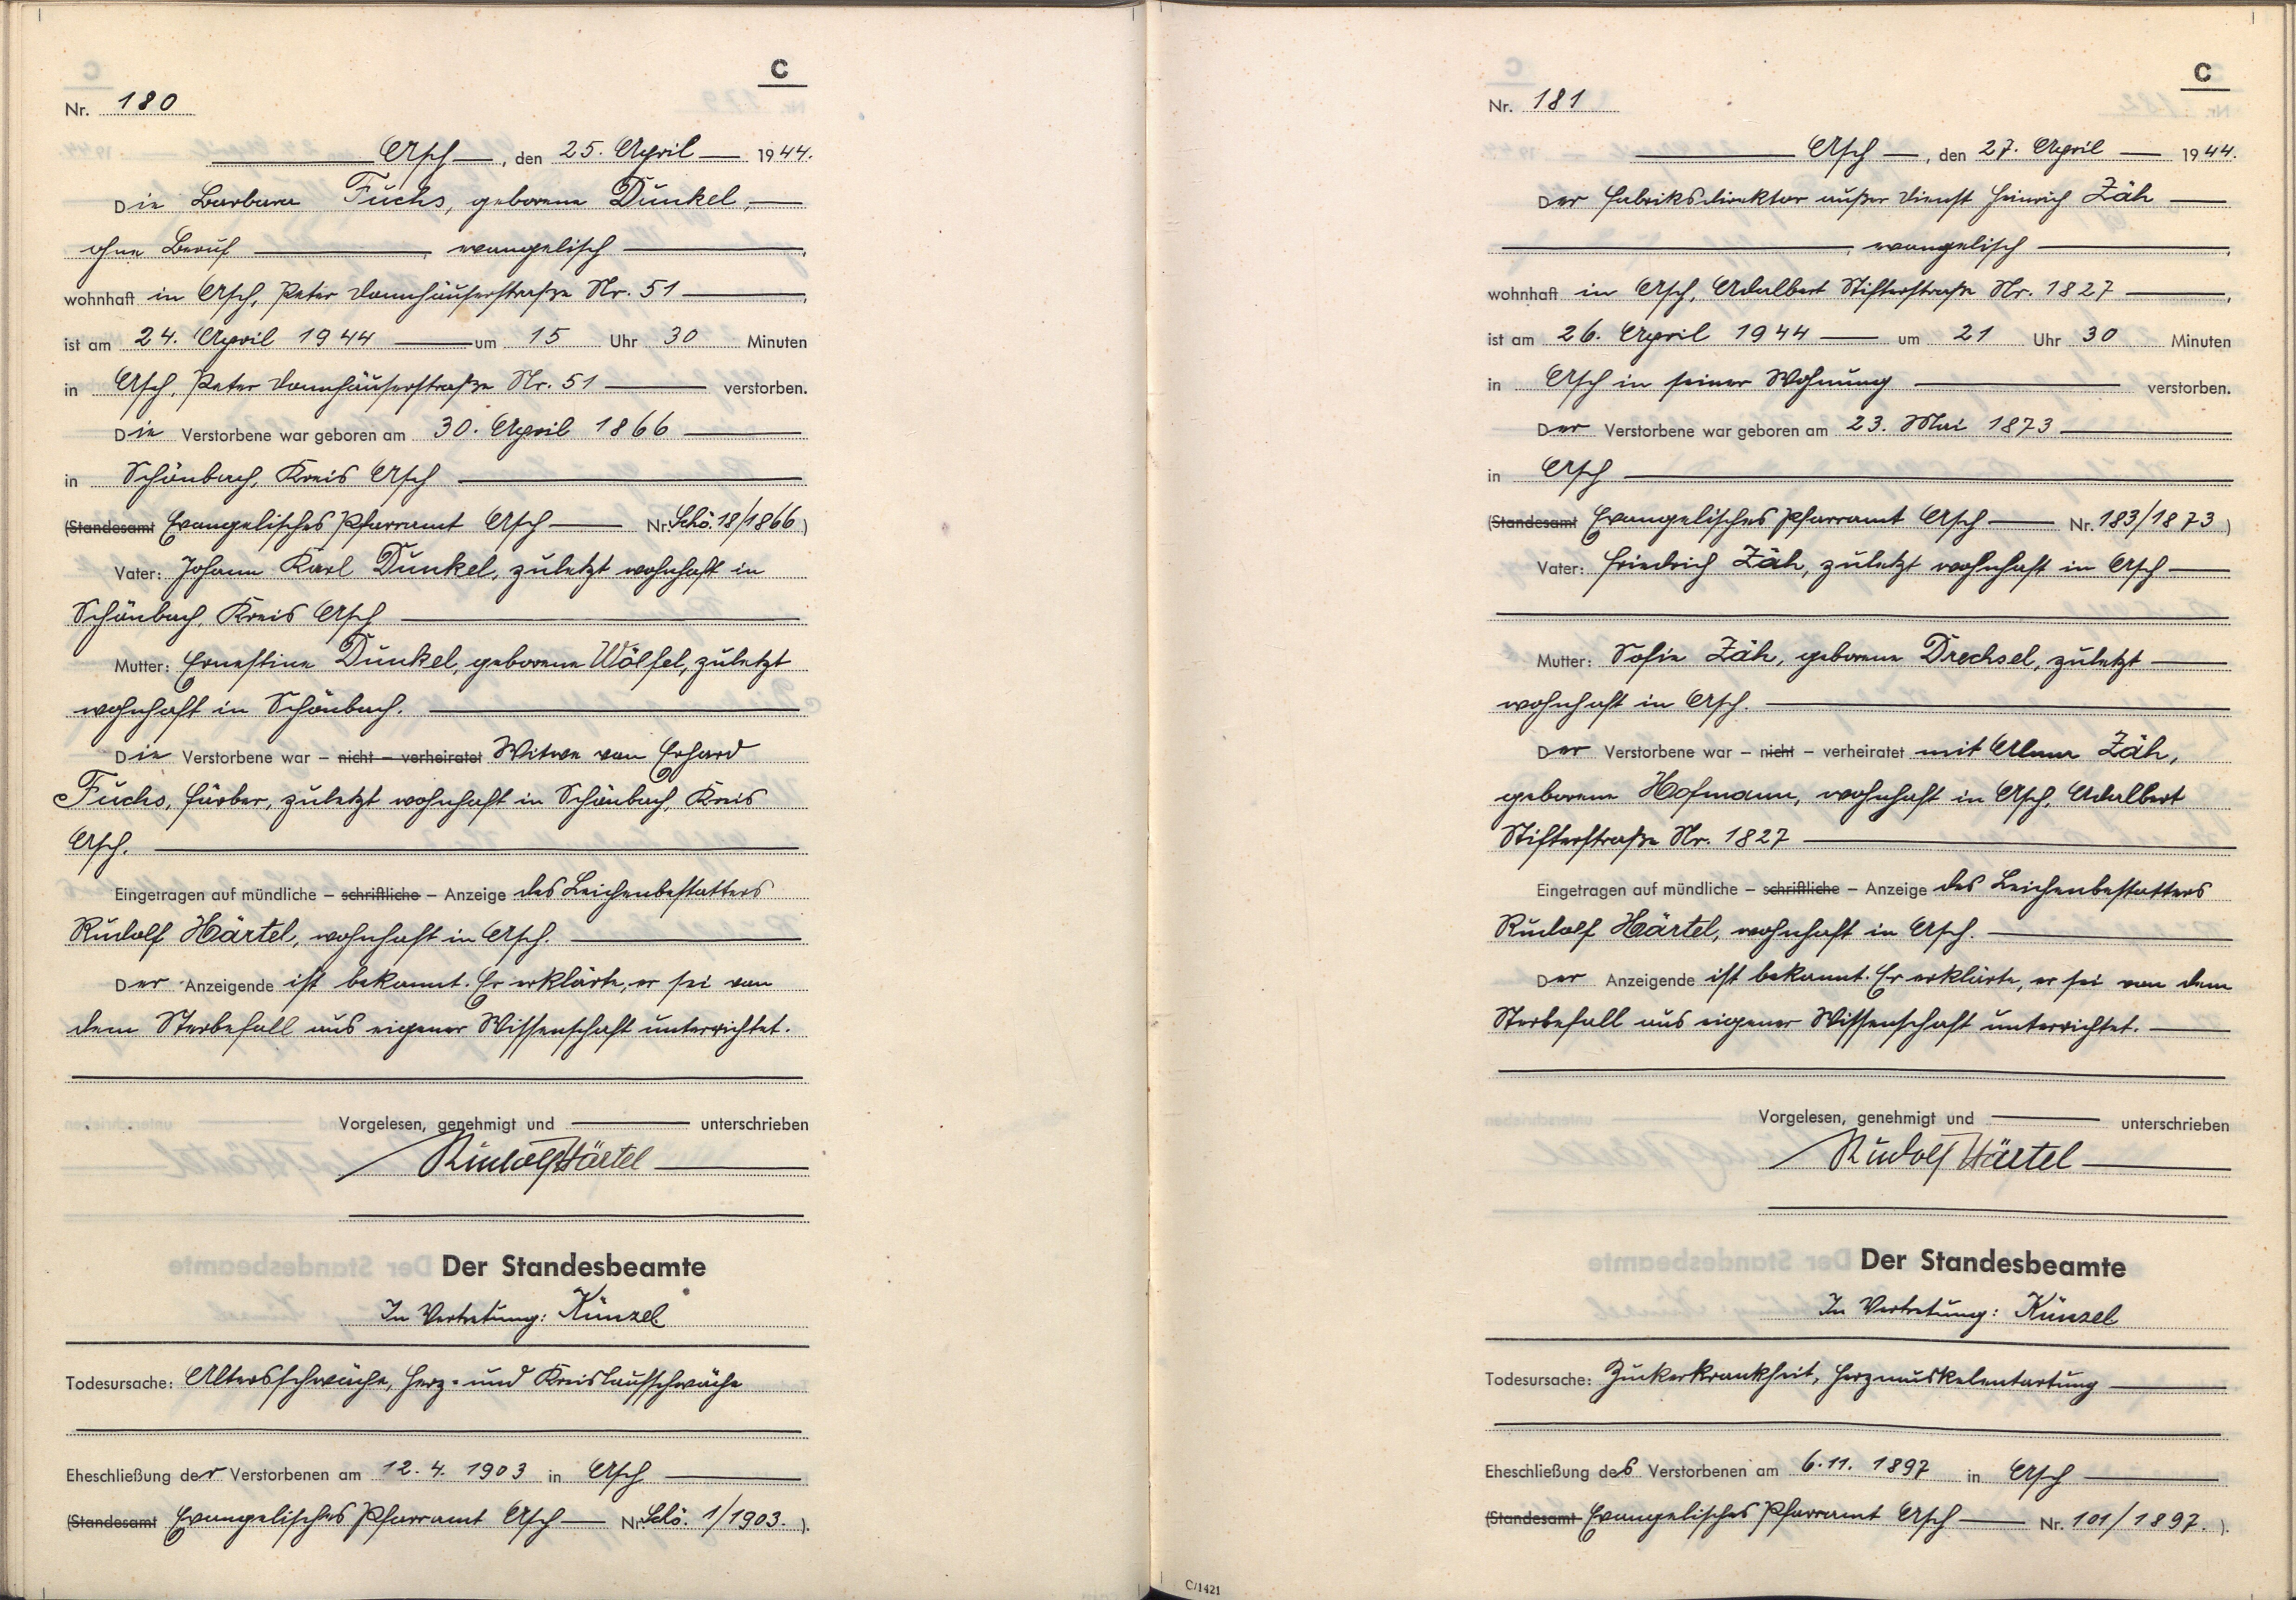 C
Nr. 180
Asch, den 25. April 1944.
Die Barbara Fuchs, geborene Dunkel,
ohne Beruf, evangelisch,
wohnhaft in Asch, Peter Donnhäuserstraße Nr. 51,
ist am 24. April 1944 um 15 Uhr 30 Minuten
in Asch, Peter Donnhäuserstraße Nr. 51 verstorben.
Die Verstorbene war geboren am 30. April 1866
in Schönbach, Kreis Asch
(Standesamt Evangelisches Pfarramt Asch Nr. Schö. 18/1866)
Vater: Johann Karl Dunkel, zuletzt wohnhaft in
Schönbach, Kreis Asch
Mutter: Ernestine Dunkel, geborene Wölfel, zuletzt
wohnhaft in Schönbach.
Die Verstorbene war – nicht – verheiratet Witwe von Erhard
Fuchs, Färber, zuletzt wohnhaft in Schönbach, Kreis
Asch.
Eingetragen auf mündliche – schriftliche – Anzeige des Leichenbestatters
Rudolf Härtel, wohnhaft in Asch.
Der Anzeigende ist bekannt. Er erklärte, er sei von
dem Sterbefall aus eigener Wissenschaft unterrichtet.
Vorgelesen, genehmigt und unterschrieben
Rudolf Härtel
Der Standesbeamte
In Vertretung: Künzel
Todesursache: Altersschwäche, Herz- und Kreislaufschwäche
Eheschließung der Verstorbenen am 12. 4. 1903 in Asch
(Standesamt Evangelisches Pfarramt Asch Nr. Schö. 1/1903.).
C
Nr. 181
Asch, den 27. April 1944.
Der Fabriksdirektor außer Dienst Heinrich Zäh
, evangelisch,
wohnhaft in Asch, Adalbert Stifterstraße Nr. 1827,
ist am 26. April 1944 um 21 Uhr 30 Minuten
in Asch in seiner Wohnung verstorben.
Der Verstorbene war geboren am 23. Mai 1873
in Asch
(Standesamt Evangelisches Pfarramt Asch Nr. 183/1873)
Vater: Friedrich Zäh, zuletzt wohnhaft in Asch
Mutter: Sofie Zäh, geborene Drechsel, zuletzt
wohnhaft in Asch.
Der Verstorbene war – nicht – verheiratet mit Alma Zäh,
geborene Hofmann, wohnhaft in Asch, Adalbert
Stifterstraße Nr. 1827
Eingetragen auf mündliche – schriftliche – Anzeige des Leichenbestatters
Rudolf Härtel, wohnhaft in Asch.
Der Anzeigende ist bekannt. Er erklärte, er sei von dem
Sterbefall aus eigener Wissenschaft unterrichtet.
Vorgelesen, genehmigt und unterschrieben
Rudolf Härtel
Der Standesbeamte
In Vertretung: Künzel
Todesursache: Zuckerkrankheit, Herzmuskelentartung
Eheschließung des Verstorbenen am 6. 11. 1897 in Asch
(Standesamt Evangelisches Pfarramt Asch Nr. 101/1897.).
C/1421